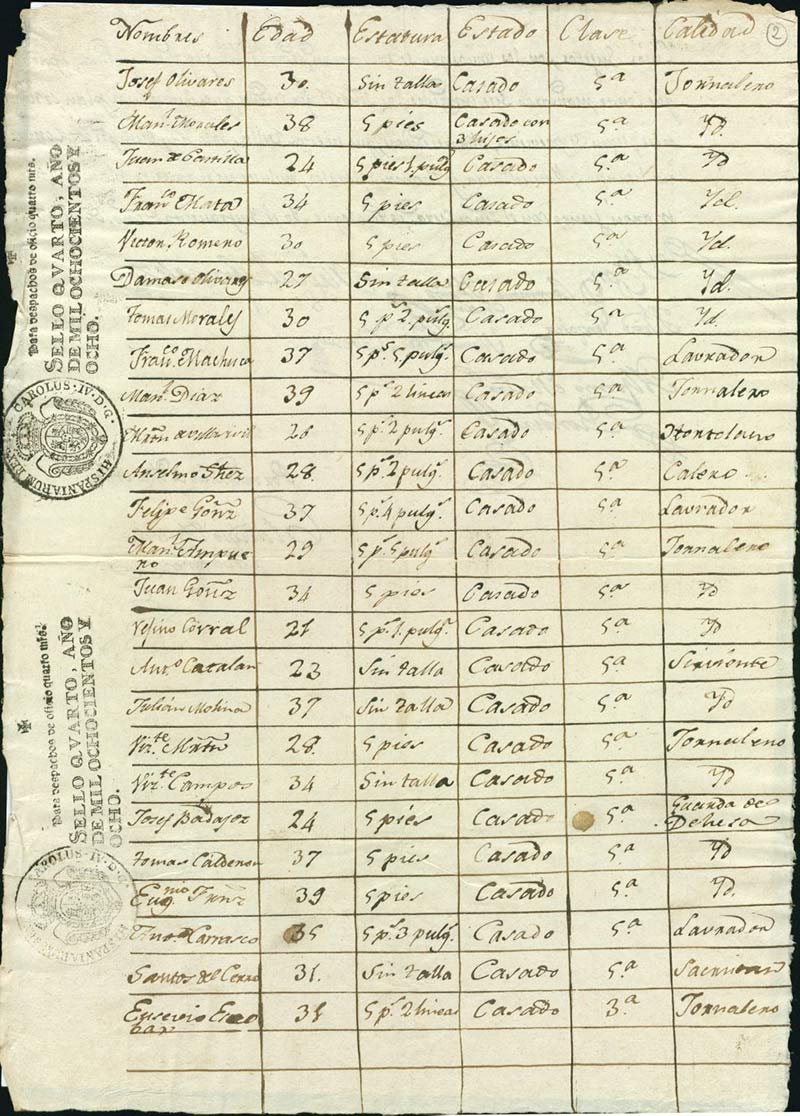 Nombres Edad Estatura Estado Clase Calidad 2
Josef Olivares 30. Sin talla Casado 5.a Jornalero
Man.l Morales 38 5 pies Casado con 3 hijos 5.a Yd.
Juan de 24 5 pies 1. pulg.s Casado 5.a Yd
Fran.co Mata 34 5 pies Casado 5.a Yd.
Victor Romero 30 5 pies Casado 5.a Yd.
Damaso Olivares 27 Sin talla Casado 5.a Yd.
Tomas Morales 30 5 p.s 2. pulg.s Casado 5.a Yd.
Fran.co Machuca 37 5 p.s 5 pulg.s Casado 5.a Lavrador
Man.l Diaz 39 5 p.s 2 lineas Casado 5.a Jornalero
26 5 p.s 2 pulg.s Casado 5.a Hortelano
Anselmo 28. 5 p.s 2 pulg.s Casado 5.a Calero
Felipe Gonz 37 5 p.s 4 pulg.s Casado 5.a Lavrador
Man.l Ampue
ro 29 5 p.s 5 pulg.s Casado 5.a Jornalero
Juan Gonz 34 5 pies Casado 5.a Yd
Corral 21 5 p.s 1. pulg.s Casado 5.a Yd
Ant.o Catalan 23 Sin talla Casado 5.a Sirviente
Julian Molina 37 Sin talla Casado 5.a Yd
Viz.te Mrtn 28. 5 pies Casado 5.a Jornalero
Viz.te Campos 34 Sin talla Casado 5.a Yd
Josef Badajoz 24 5 pies Casado 5.a Guarda de Dehesa
Tomas Calderon 37 5 pies Casado 5.a Yd
Eug.nio 39 5 pies Casado 5.a Yd.
Carrasco 35 5 p.s 3 pulg.s Casado 5.a Lavrador
Santos del Cerro 31. Sin talla Casado 5.a
Eusevio Esco
bar 35 5 p.s 2 lineas Casado 3.a Jornalero
Para despachos de oficio quatro mrs.
SELLO QVARTO, AÑO
DE MIL OCHOCIENTOS Y
OCHO.
CAROLUS·IV·D·G· HISPANIARUM REX
Para despachos de oficio quatro mrs.
SELLO QVARTO, AÑO
DE MIL OCHOCIENTOS Y
OCHO.
CAROLUS·IV·D·G· HISPANIARUM REX